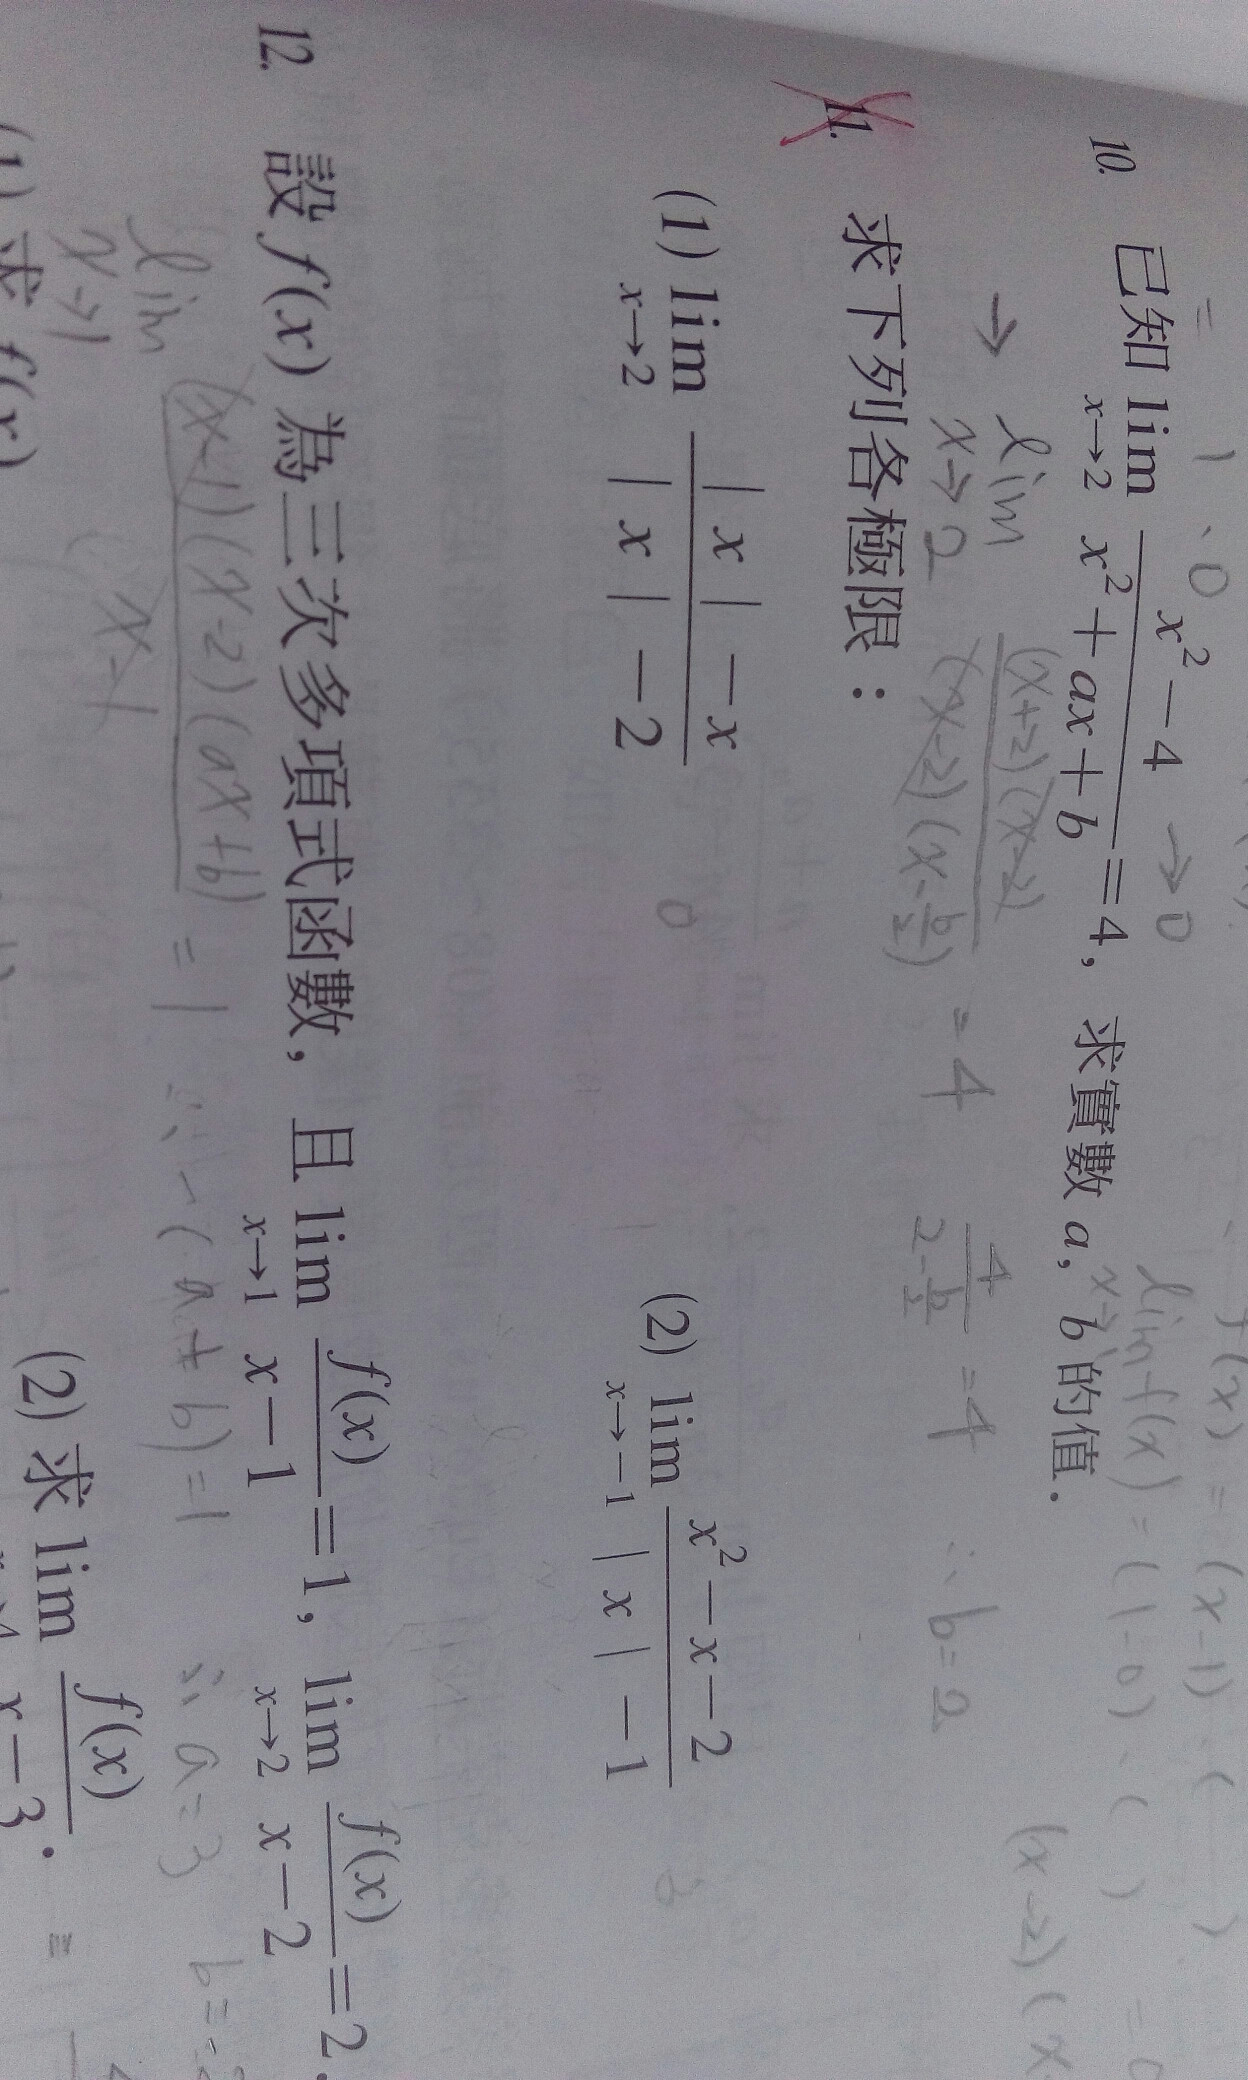 = 1、0
f(x) = (x-1)·( )
10. 已知 lim_{x→2} (x²-4)/(x²+ax+b) = 4, 求實數 a, b 的值.
→0
lim_{x→1} f(x) = (1-0)·( ) = 0
→ lim_{x→2} (x+2)(x-2)/((x-2)(x-b/2)) = 4 4/(2-b/2) = 4 ∴ b=2
(x-2)(x
11. 求下列各極限：
(1) lim_{x→2} (|x|-x)/(|x|-2) (2) lim_{x→-1} (x²-x-2)/(|x|-1)
0
12. 設 f(x) 為三次多項式函數, 且 lim_{x→1} f(x)/(x-1) = 1, lim_{x→2} f(x)/(x-2) = 2.
lim_{x→1} (x-1)(x-2)(ax+b)/(x-1) = 1 ∴ -(a+b)=1 ∴ a=3
(1) 求 f(x) (2) 求 lim f(x)/(x-3).